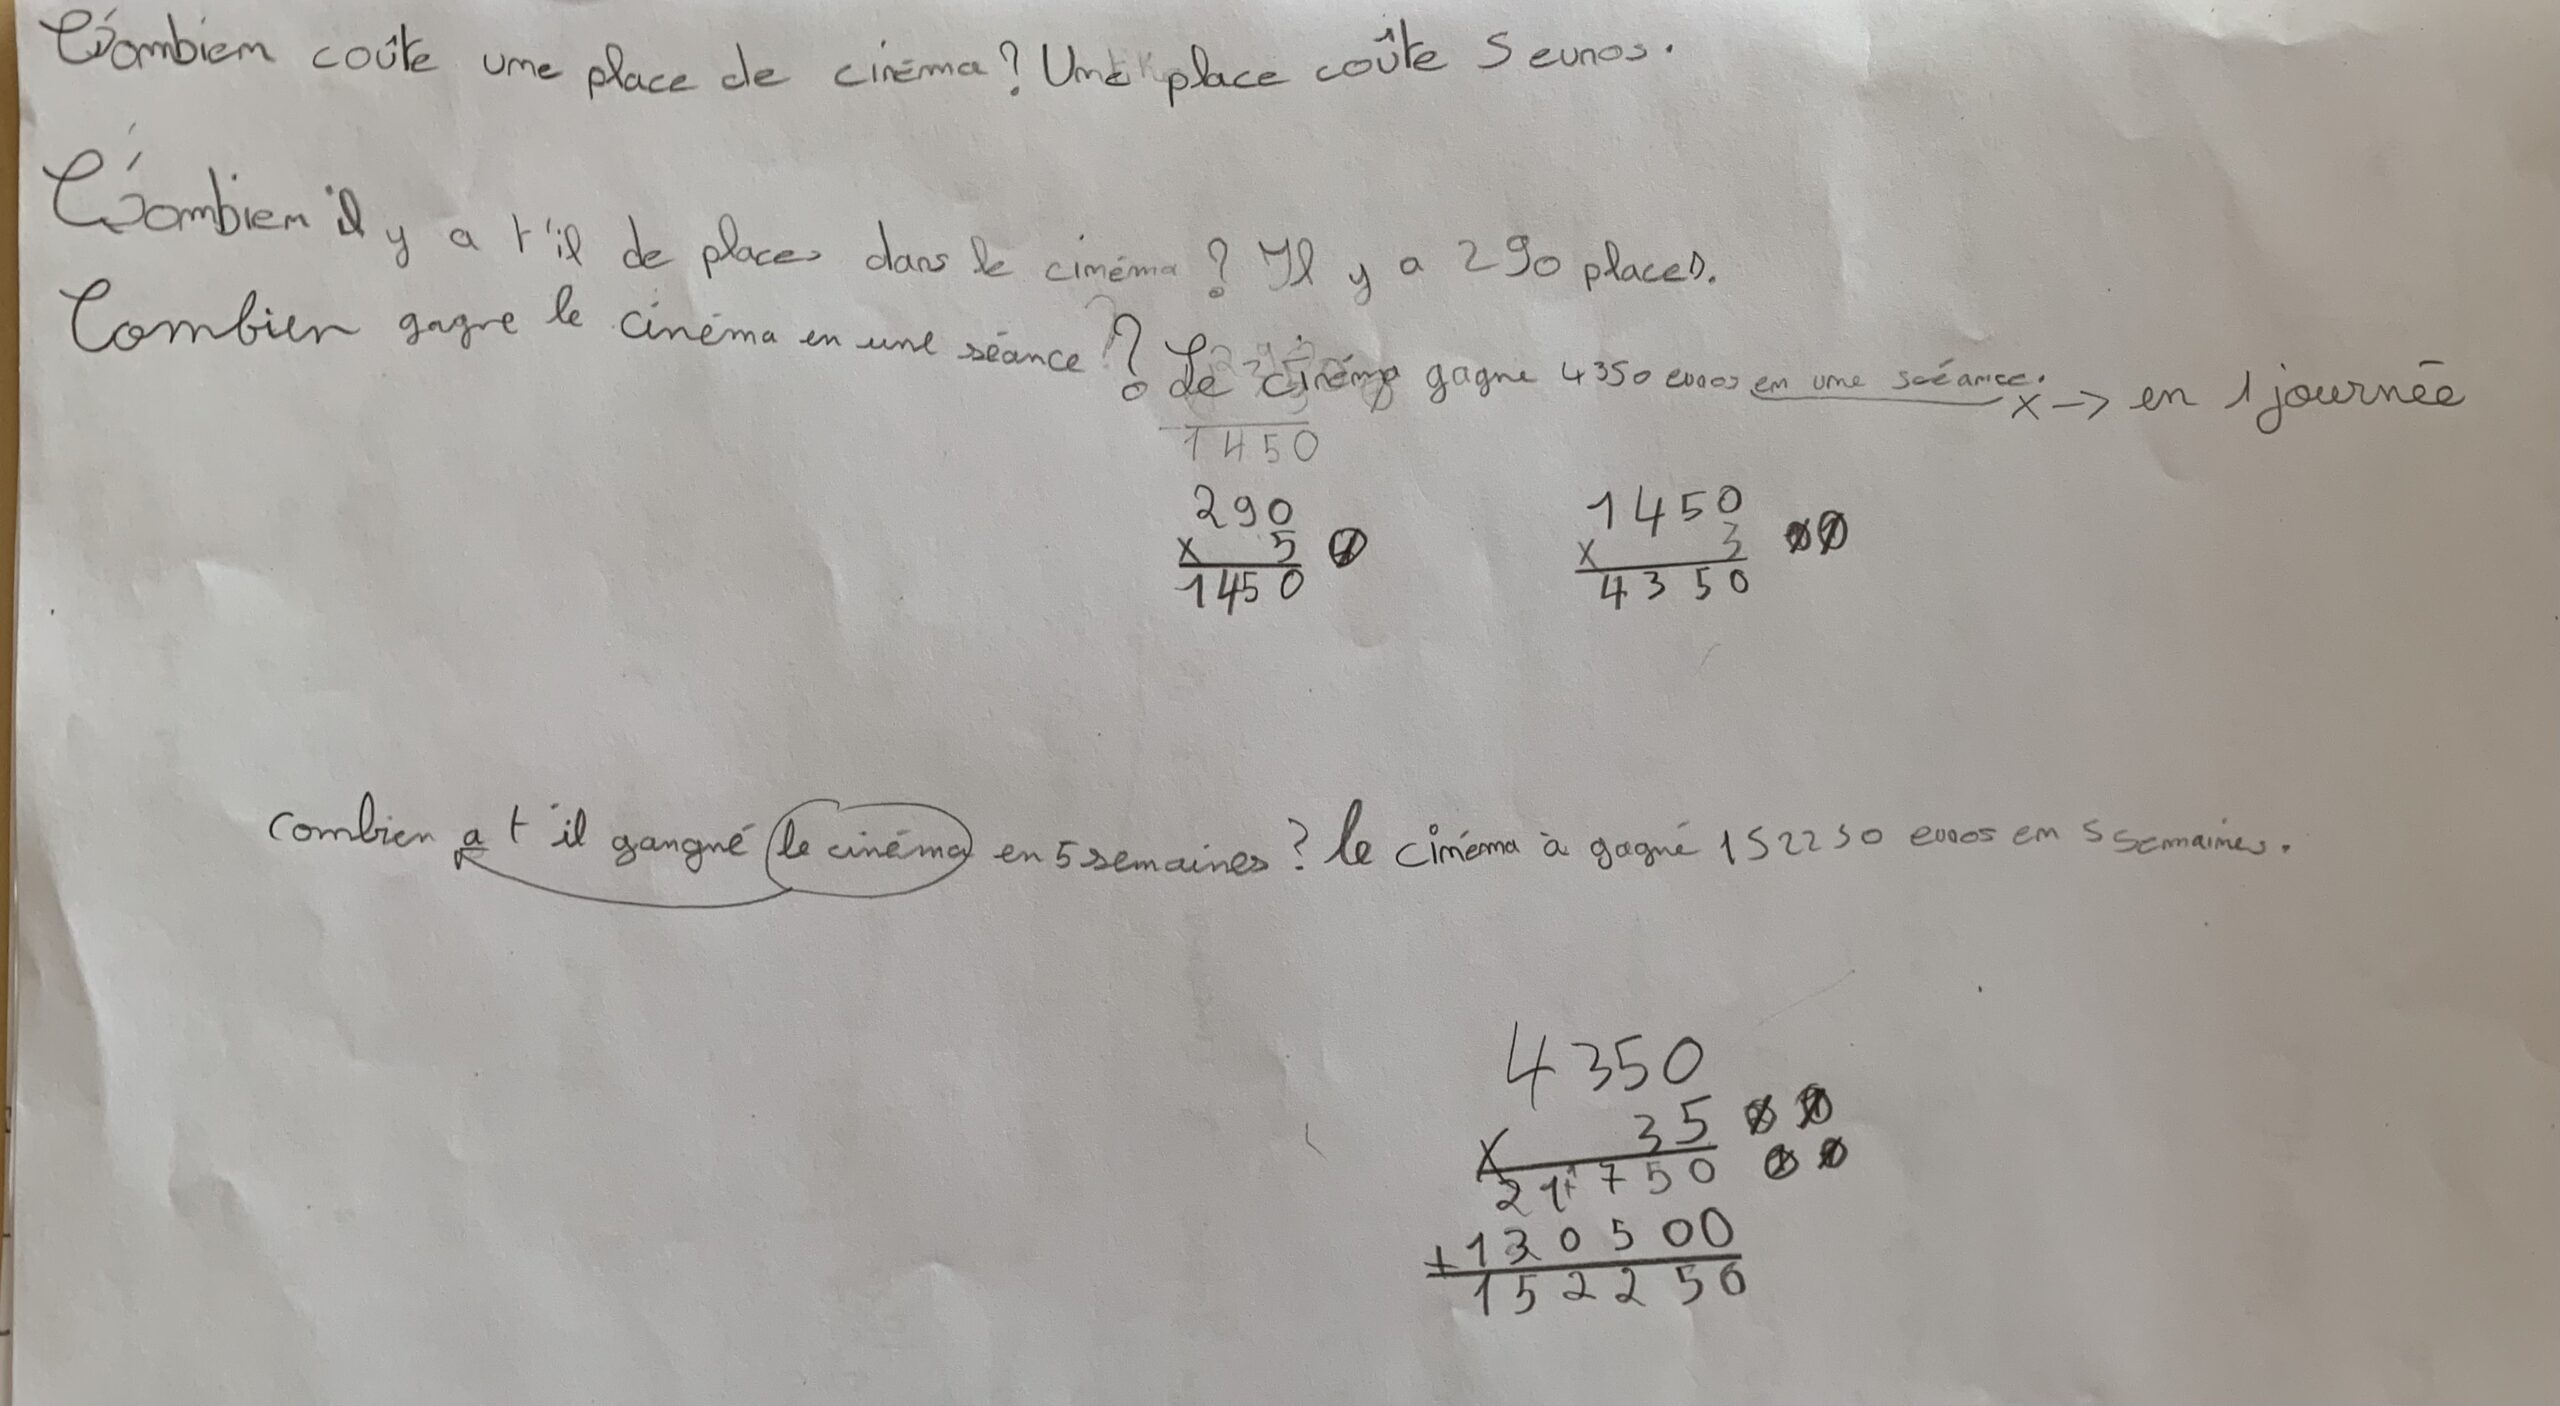 Combien coûte une place de cinéma ? Une place coûte 5 euros.
Combien il y a t'il de places dans le cinéma ? Il y a 290 places.
Combien gagne le cinéma en une séance ? Le cinéma gagne 4350 euros en une scéance. x -> en 1 journée
1450
290 1450
x 5 x 3
1450 4350
combien a t'il gangné le cinéma en 5 semaines ? le cinéma à gagné 152250 euros em 5 semaines.
4350
x 35
21750
+130500
152250